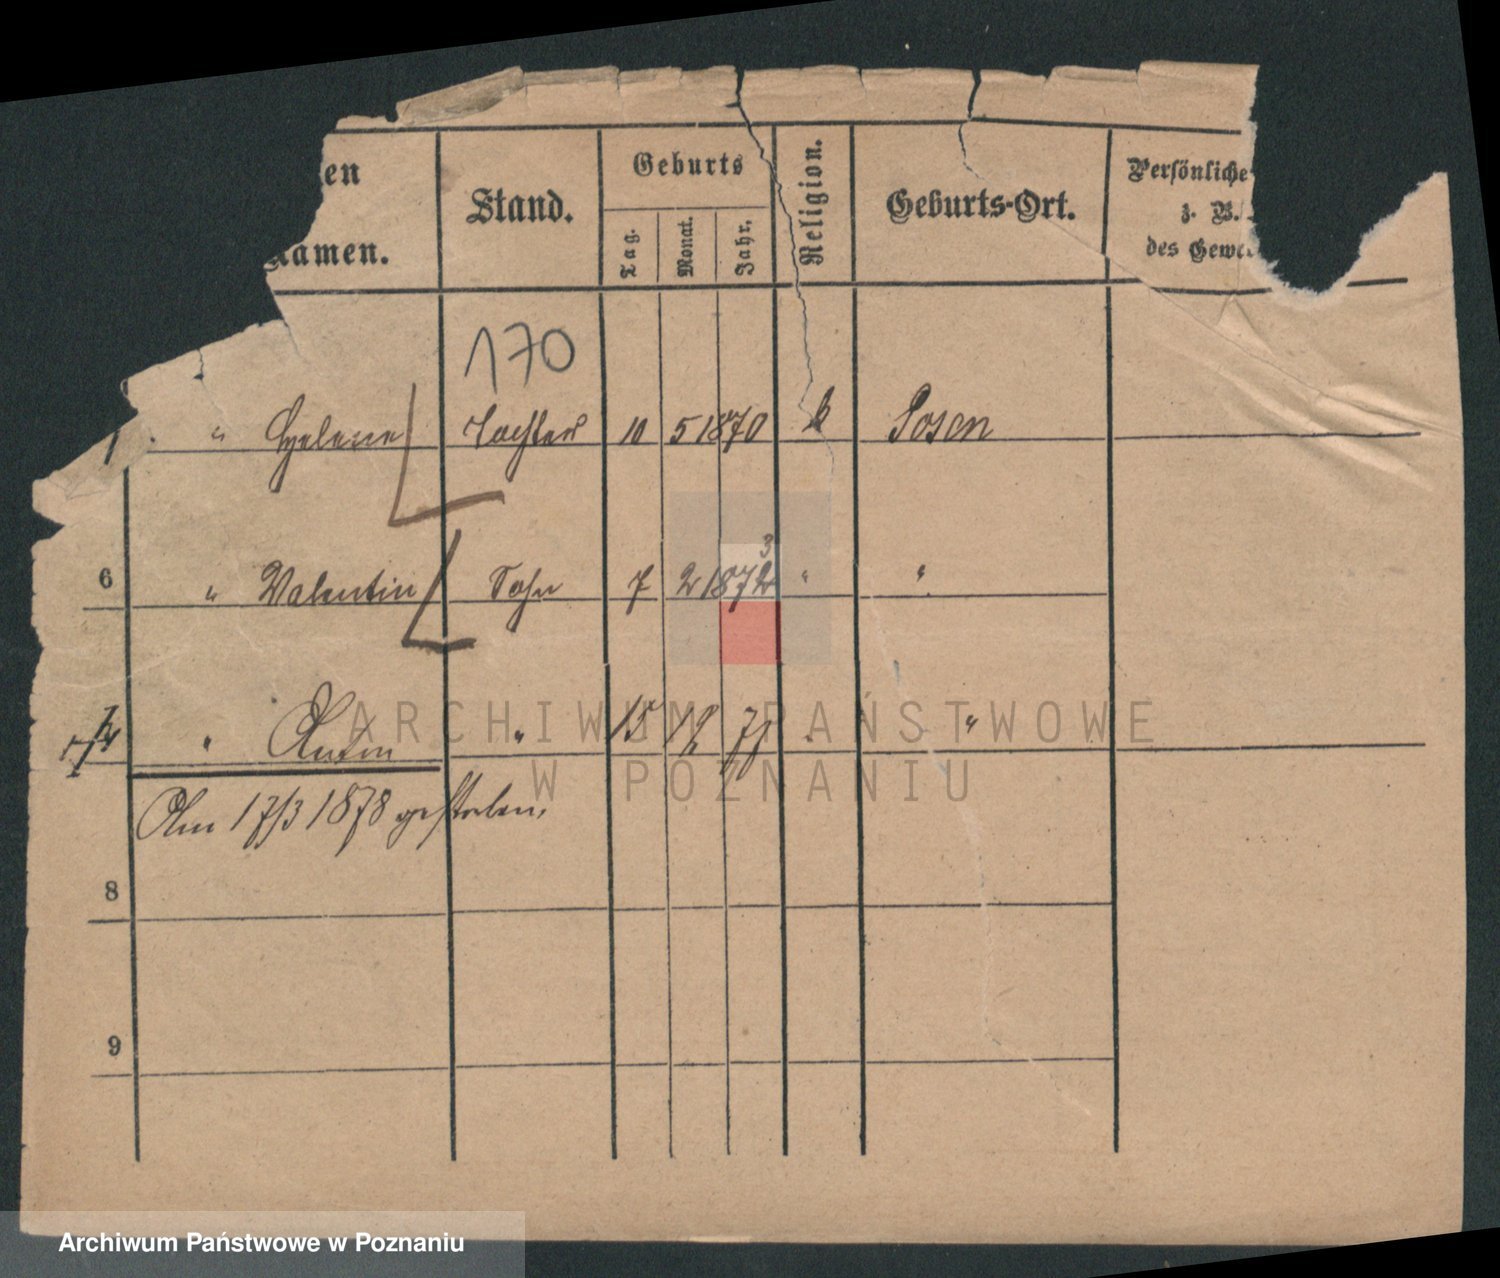 en
Namen.
Stand.
Geburts
Tag.
Monat.
Jahr.
Religion.
Geburts-Ort.
Persönliche
z. B.
des Gewe
170
" Helene Tochter 10 5 1870 k Posen
3
6 " Valentin Sohn 7 2 1872 " "
" Anton " 15 12 77 "
Am 17/3 1878 gestorben.
8
9
ARCHIWUM PAŃSTWOWE
W POZNANIU
Archiwum Państwowe w Poznaniu